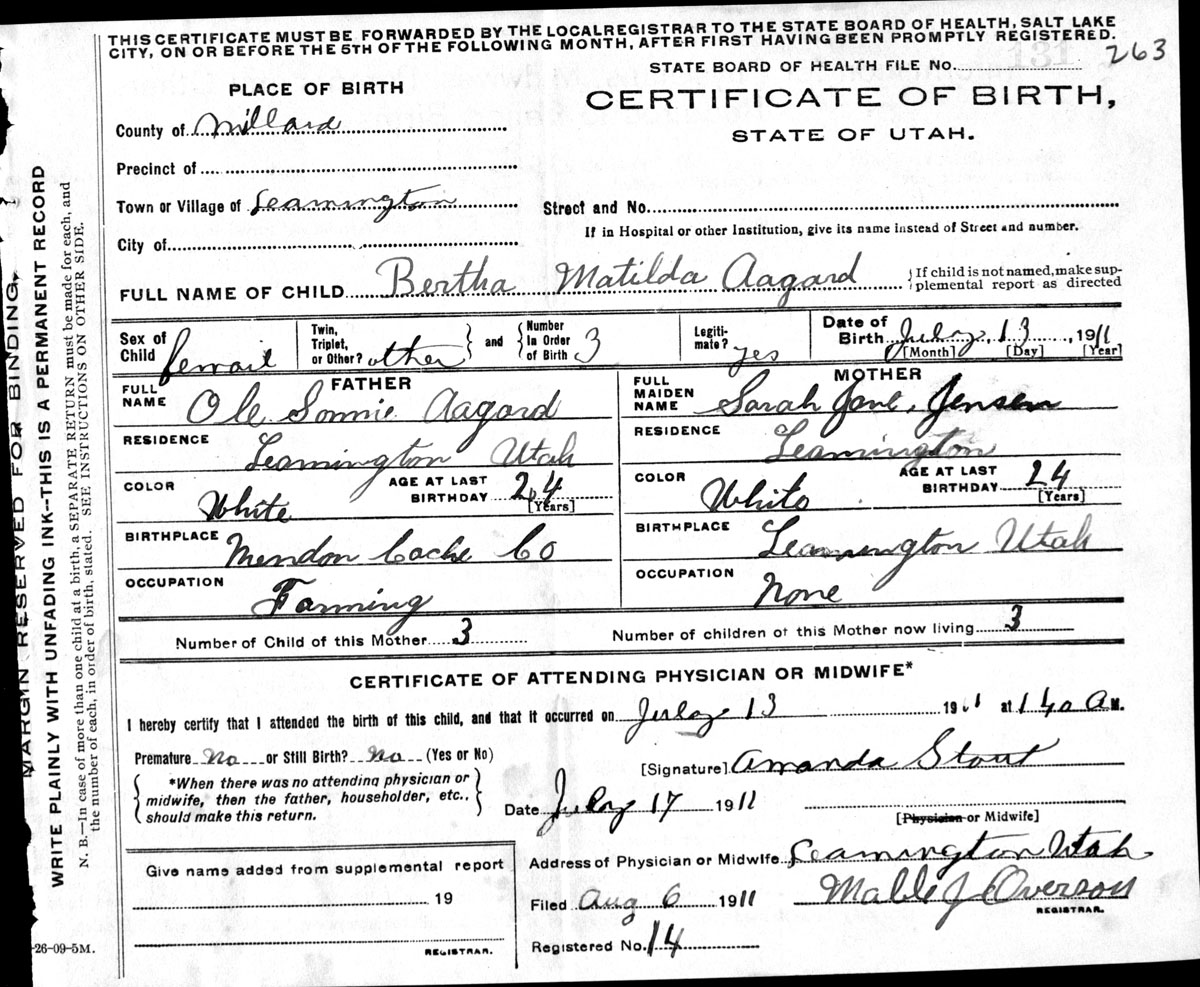 THIS CERTIFICATE MUST BE FORWARDED BY THE LOCALREGISTRAR TO THE STATE BOARD OF HEALTH, SALT LAKE
CITY, ON OR BEFORE THE 5TH OF THE FOLLOWING MONTH, AFTER FIRST HAVING BEEN PROMPTLY REGISTERED.
263
STATE BOARD OF HEALTH FILE No.
131
PLACE OF BIRTH
CERTIFICATE OF BIRTH,
STATE OF UTAH.
County of Millard
Precinct of
Town or Village of Leamington
Street and No.
City of
If in Hospital or other Institution, give its name instead of Street and number.
FULL NAME OF CHILD Bertha Matilda Aagard
{If child is not named, make sup-
plemental report as directed
Sex of Child femail
Twin, Triplet, or Other? other
and
Number In Order of Birth 3
Legiti-mate? yes
Date of Birth July, 13, 1911
[Month] [Day] [Year]
FATHER
FULL NAME Ole Sonnie Aagard
RESIDENCE Leamington Utah
COLOR White
AGE AT LAST BIRTHDAY 24 [Years]
BIRTHPLACE Mendon Cache Co
OCCUPATION Farming
MOTHER
FULL MAIDEN NAME Sarah Jane, Jensen
RESIDENCE Leamington
COLOR White
AGE AT LAST BIRTHDAY 24 [Years]
BIRTHPLACE Leamington Utah
OCCUPATION None
Number of Child of this Mother 3
Number of children of this Mother now living 3
CERTIFICATE OF ATTENDING PHYSICIAN OR MIDWIFE*
I hereby certify that I attended the birth of this child, and that it occurred on July 13 1911 at 140 A M.
Premature No or Still Birth? No (Yes or No)
[Signature] Amanda Stout
{*When there was no attending physician or
midwife, then the father, householder, etc.,
should make this return.}
Date July 17 1911
[Physician or Midwife]
Give name added from supplemental report
19
REGISTRAR.
Address of Physician or Midwife Leamington Utah
Filed Aug 6 1911
Mable J Overson
REGISTRAR.
Registered No. 14
-26-09-5M.
MARGIN RESERVED FOR BINDING.
WRITE PLAINLY WITH UNFADING INK--THIS IS A PERMANENT RECORD
N. B.—In case of more than one child at a birth, a SEPARATE RETURN must be made for each, and
the number of each, in order of birth, stated. SEE INSTRUCTIONS ON OTHER SIDE.